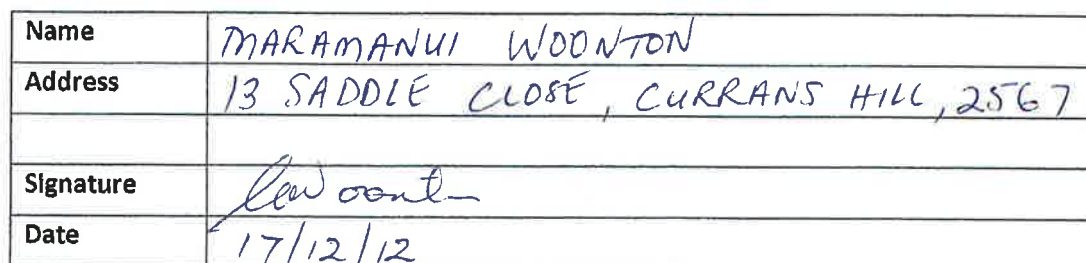 Name MARAMANUI WOONTON
Address 13 SADDLE CLOSE, CURRANS HILL, 2567
Signature
Date 17/12/12